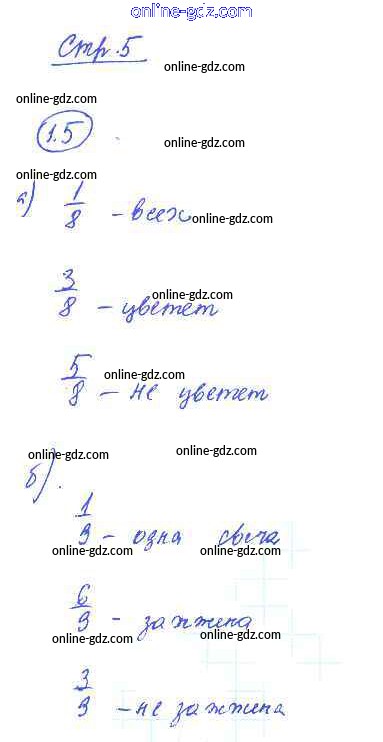 online-gdz.com
Стр. 5
online-gdz.com
online-gdz.com
1.5
online-gdz.com
online-gdz.com
а) 1/8 - всех
online-gdz.com
online-gdz.com
3/8 - цветет
online-gdz.com
5/8 - не цветет
online-gdz.com
online-gdz.com
б).
1/9 - одна свеча
online-gdz.com
online-gdz.com
6/9 - зажжена
online-gdz.com
online-gdz.com
3/9 - не зажжена
online-gdz.com
online-gdz.com